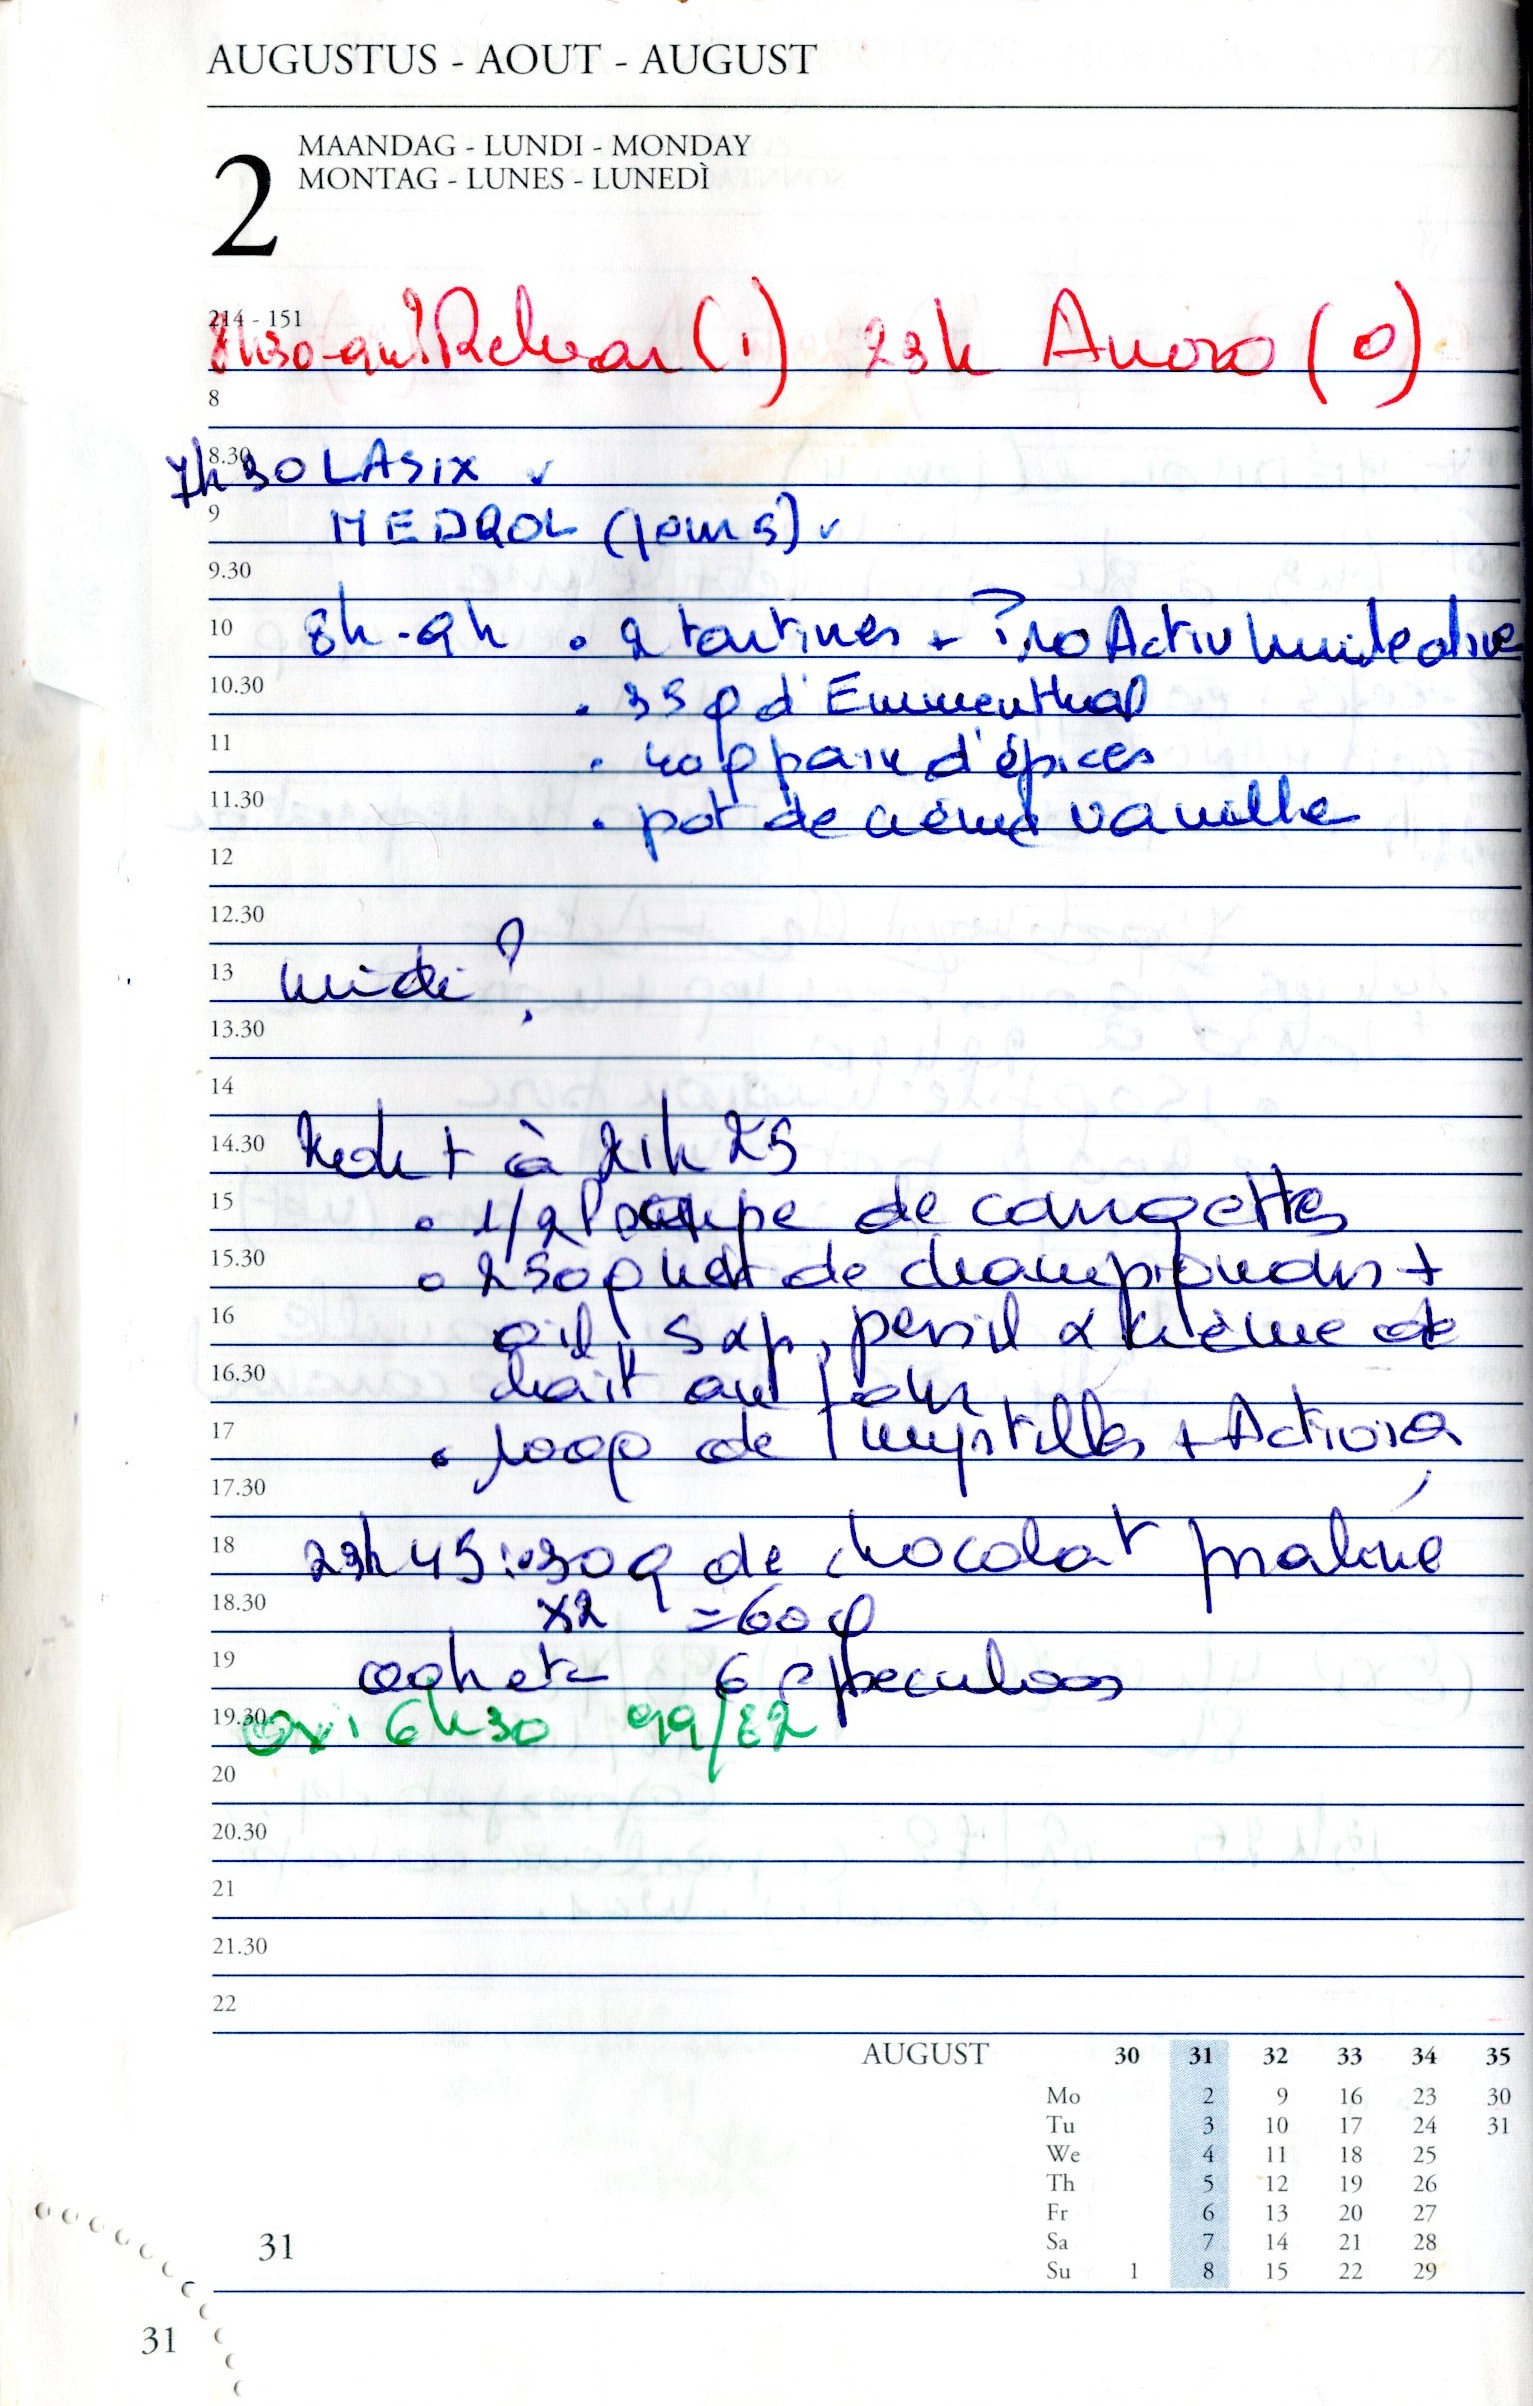 AUGUSTUS - AOUT - AUGUST
2
MAANDAG - LUNDI - MONDAY
MONTAG - LUNES - LUNEDÌ
214 - 151
8h30-9h? Relvar (1) 23h Anoro (0)
8
8.30
7h30 LASIX v
9
MEDROL (jour 5) v
9.30
10
8h-9h . 2 tartines + ProActiv huile olive
10.30
. 35g d'Emmenthal
11
. 40g pain d'épices
11.30
. pot de crème vanille
12
12.30
13
midi ?
13.30
14
14.30
à 21h25
15
. 1/2 l soupe de courgettes
15.30
. 250g net de champignons +
16
ail, s x p, persil & crème de
16.30
au four
17
. 100g de myrtilles + Activia
17.30
18
23h45 : . 30g de chocolat praliné
18.30
x2 = 60g
19
6 speculoos
19.30
Oxi 6h30 99/82
20
20.30
21
21.30
22
AUGUST 30 31 32 33 34 35
Mo 2 9 16 23 30
Tu 3 10 17 24 31
We 4 11 18 25
Th 5 12 19 26
Fr 6 13 20 27
Sa 7 14 21 28
Su 1 8 15 22 29
31
31